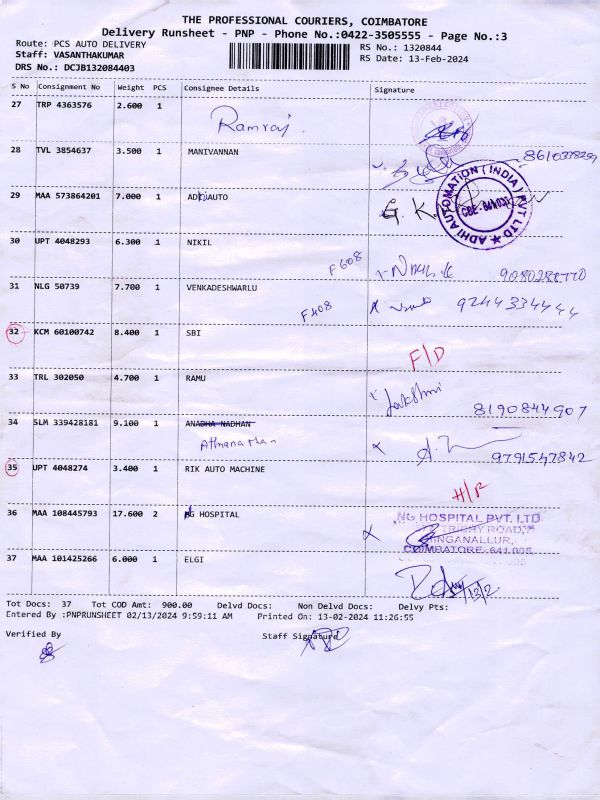 THE PROFESSIONAL COURIERS, COIMBATORE
Delivery Runsheet - PNP - Phone No.:0422-3505555 - Page No.:3
Route: PCS AUTO DELIVERY
RS No.: 1320844
Staff: VASANTHAKUMAR
RS Date: 13-Feb-2024
DRS No.: DCJB132084403
S No Consignment No Weight PCS Consignee Details Signature
27 TRP 4363576 2.600 1
Ramraj.
28 TVL 3854637 3.500 1 MANIVANNAN
8610338259
29 MAA 573864201 7.000 1 ADKIAUTO
ADHI AUTOMATION (INDIA) PVT LTD ★
CBE-641031
30 UPT 4048293 6.300 1 NIKIL
F608
31 NLG 50739 7.700 1 VENKADESHWARLU
F408 9244334444
32 KCM 60100742 8.400 1 SBI
F/D
33 TRL 302050 4.700 1 RAMU
Lakshmi
8190844907
34 SLM 339428181 9.100 1 ANADHA NADHAN
Athanathan
9791547842
35 UPT 4048274 3.400 1 RIK AUTO MACHINE
H/P
36 MAA 108445793 17.600 2 NG HOSPITAL
NG HOSPITAL PVT. LTD
TRICHY ROAD,
SINGANALLUR,
COIMBATORE-641 005
37 MAA 101425266 6.000 1 ELGI
13/2
Tot Docs: 37 Tot COD Amt: 900.00 Delvd Docs: Non Delvd Docs: Delvy Pts:
Entered By :PNPRUNSHEET 02/13/2024 9:59:11 AM Printed On: 13-02-2024 11:26:55
Verified By Staff Signature